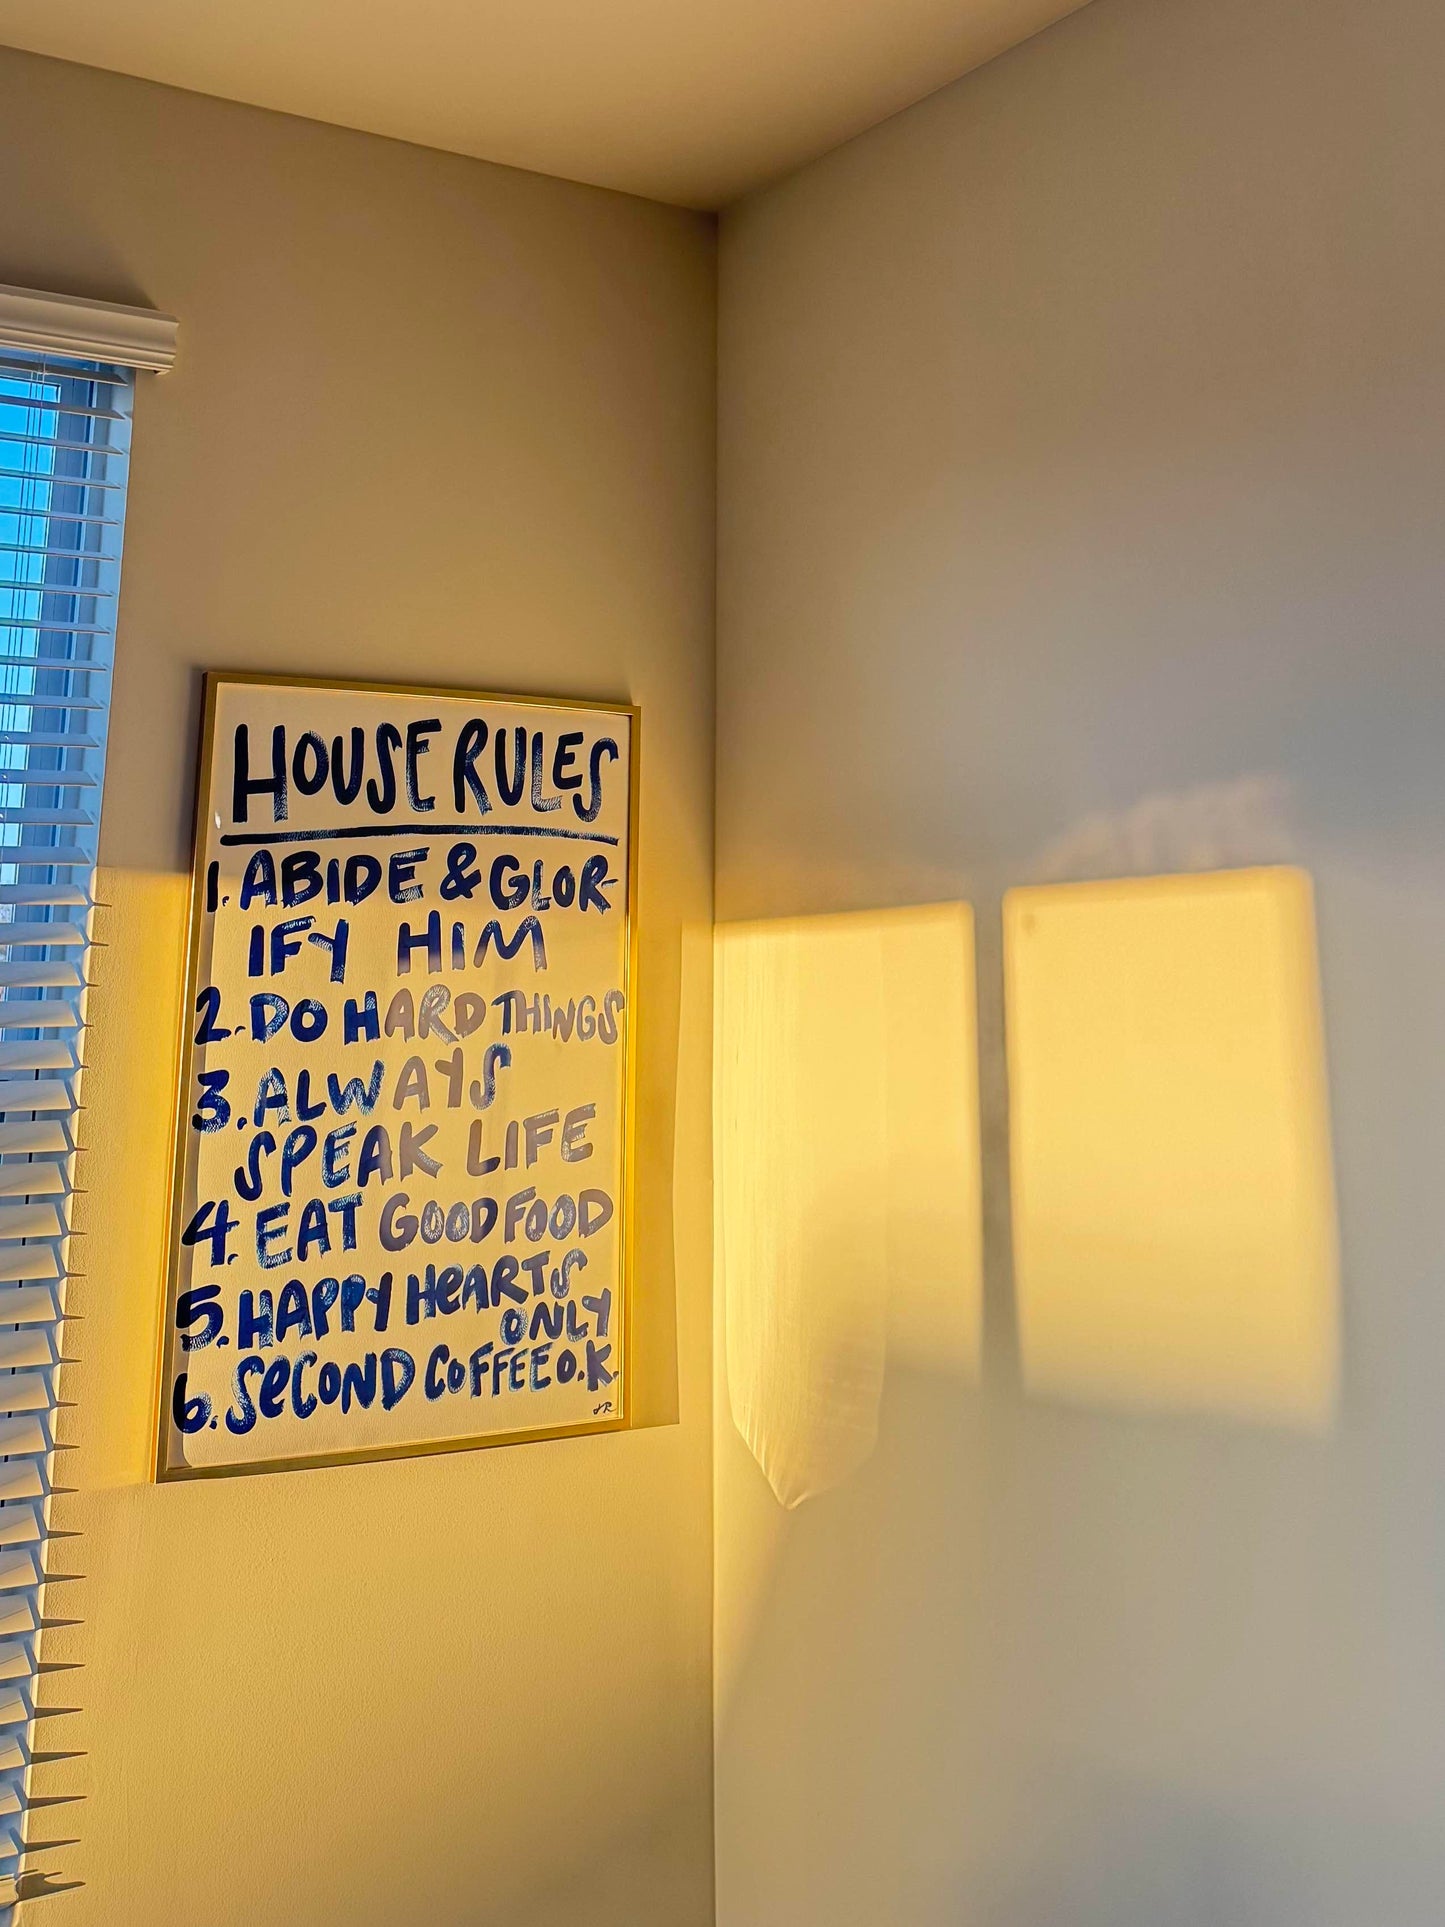 HOUSE RULES
1. ABIDE & GLOR-
IFY HIM
2. DO HARD THINGS
3. ALWAYS
SPEAK LIFE
4. EAT GOOD FOOD
5. HAPPY HEARTS
ONLY
6. SECOND COFFEE O.K.
JR